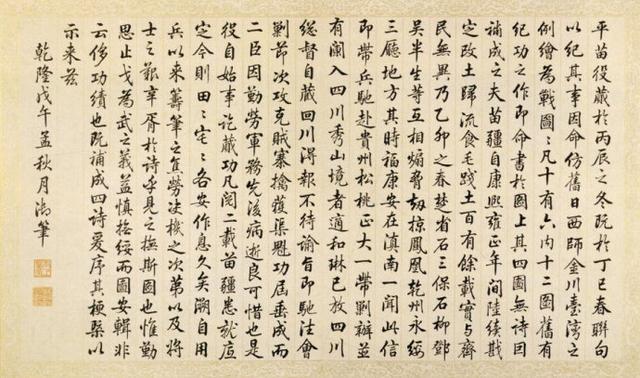 平苗役蕆於丙辰之冬既於丁巳春聯句
以紀其事因命仿舊日西師金川臺灣之
例繪為戰圖〻凡十有六內十二圖舊有
紀功之作即命書於圖上其四圖無詩因
補成之夫苗疆自康熙雍正年間陸續戡
定改土歸流食毛踐土百有餘載實與齊
民無異乃乙卯之春楚省石三保石柳鄧
吳半生等互相煽脅劫掠鳳凰乾州永綏
三廳地方其時福康安在滇南一聞此信
即帶兵馳赴貴州松桃正大一帶剿辦並
有闌入四川秀山境者適和琳已放四川
總督自藏回川得報不待諭旨即馳往會
剿節次攻克賊寨擒獲渠魁功屆垂成而
二臣因勤勞軍務先後病逝良可惜也是
役自始事訖蕆功凡閱二載苗疆悉就底
定今則田〻宅〻各安作息久矣溯自用
兵以來籌筆之宜勞決機之次第以及將
士之艱辛胥於詩乎見之撫斯圖也惟勤
思止戈為武之義益慎拊綏而圖安輯非
云侈功績也既補成四詩爰序其梗槩以
示來茲
乾隆戊午孟秋月御筆